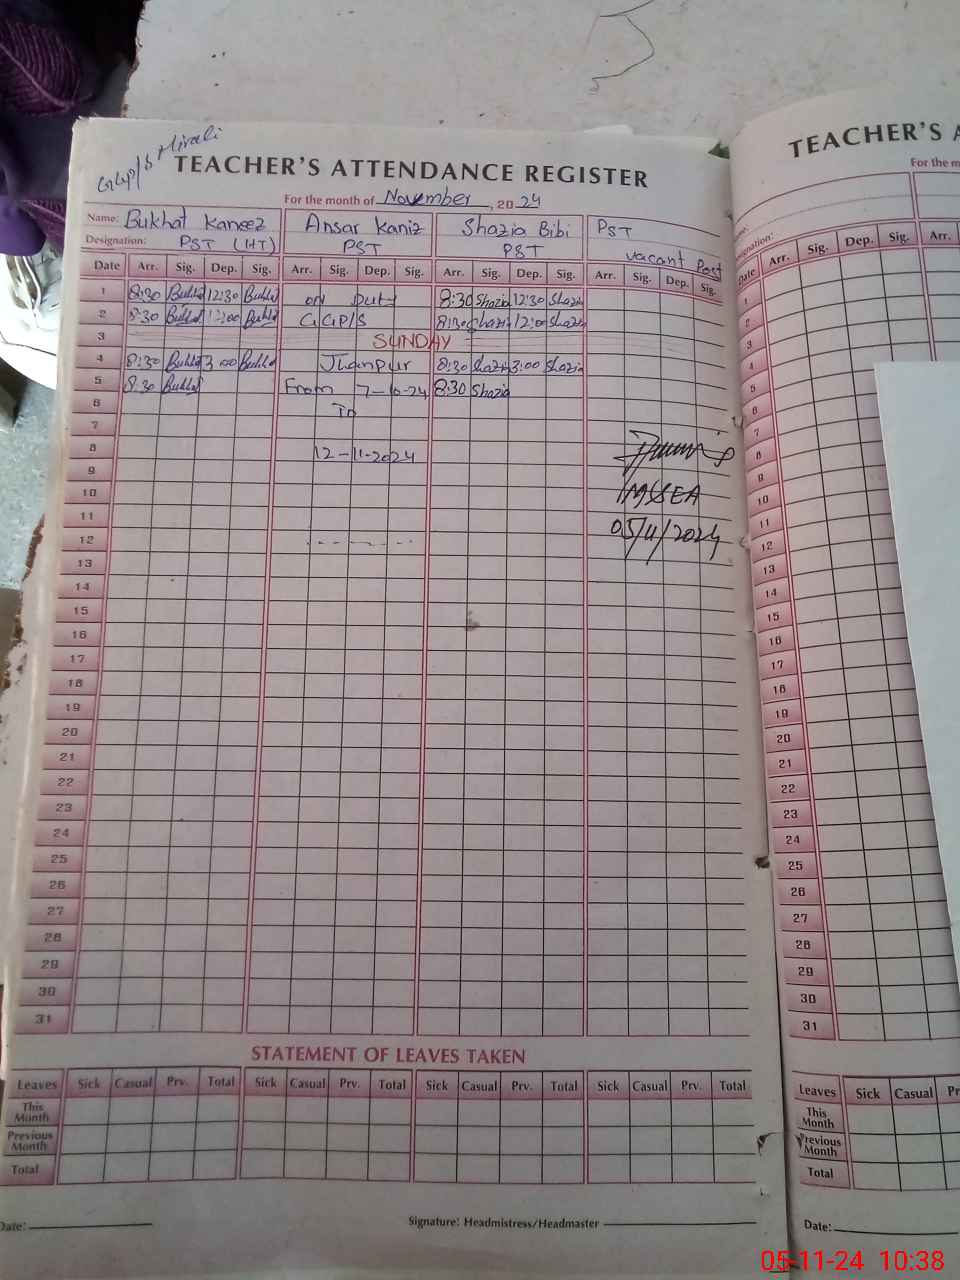 GGP/S Mirali
TEACHER'S ATTENDANCE REGISTER
For the month of November, 2024
Name: Bukhat Kaneez Ansar Kaniz Shazia Bibi PST
Designation: PST (HT) PST PST vacant Post
Date Arr. Sig. Dep. Sig. Arr. Sig. Dep. Sig. Arr. Sig. Dep. Sig. Arr. Sig. Dep. Sig.
1 8:30 Bukhat 12:30 Bukhat on Duty 8:30 Shazia 12:30 Shazia
2 8:30 Bukhat 12:00 Bukhat GGP/S 8:30 Shazia 12:00 Shazia
3 SUNDAY
4 8:30 Bukhat 3:00 Bukhat Jhanpur 8:30 Shazia 3:00 Shazia
5 8:30 Bukhat From 7-10-24 8:30 Shazia
6 To
7
8 12-11-2024
9
10 IMSSEA
11
12 05/11/2024
13
14
15
16
17
18
19
20
21
22
23
24
25
26
27
28
29
30
31
STATEMENT OF LEAVES TAKEN
Leaves Sick Casual Prv. Total Sick Casual Prv. Total Sick Casual Prv. Total Sick Casual Prv. Total
This Month
Previous Month
Total
Date: Signature: Headmistress/Headmaster
TEACHER'S A
For the m
Date Arr. Sig. Dep. Sig. Arr.
1
2
3
4
5
6
7
8
9
10
11
12
13
14
15
16
17
18
19
20
21
22
23
24
25
26
27
28
29
30
31
Leaves Sick Casual Pr
This Month
Previous Month
Total
Date:
05-11-24 10:38